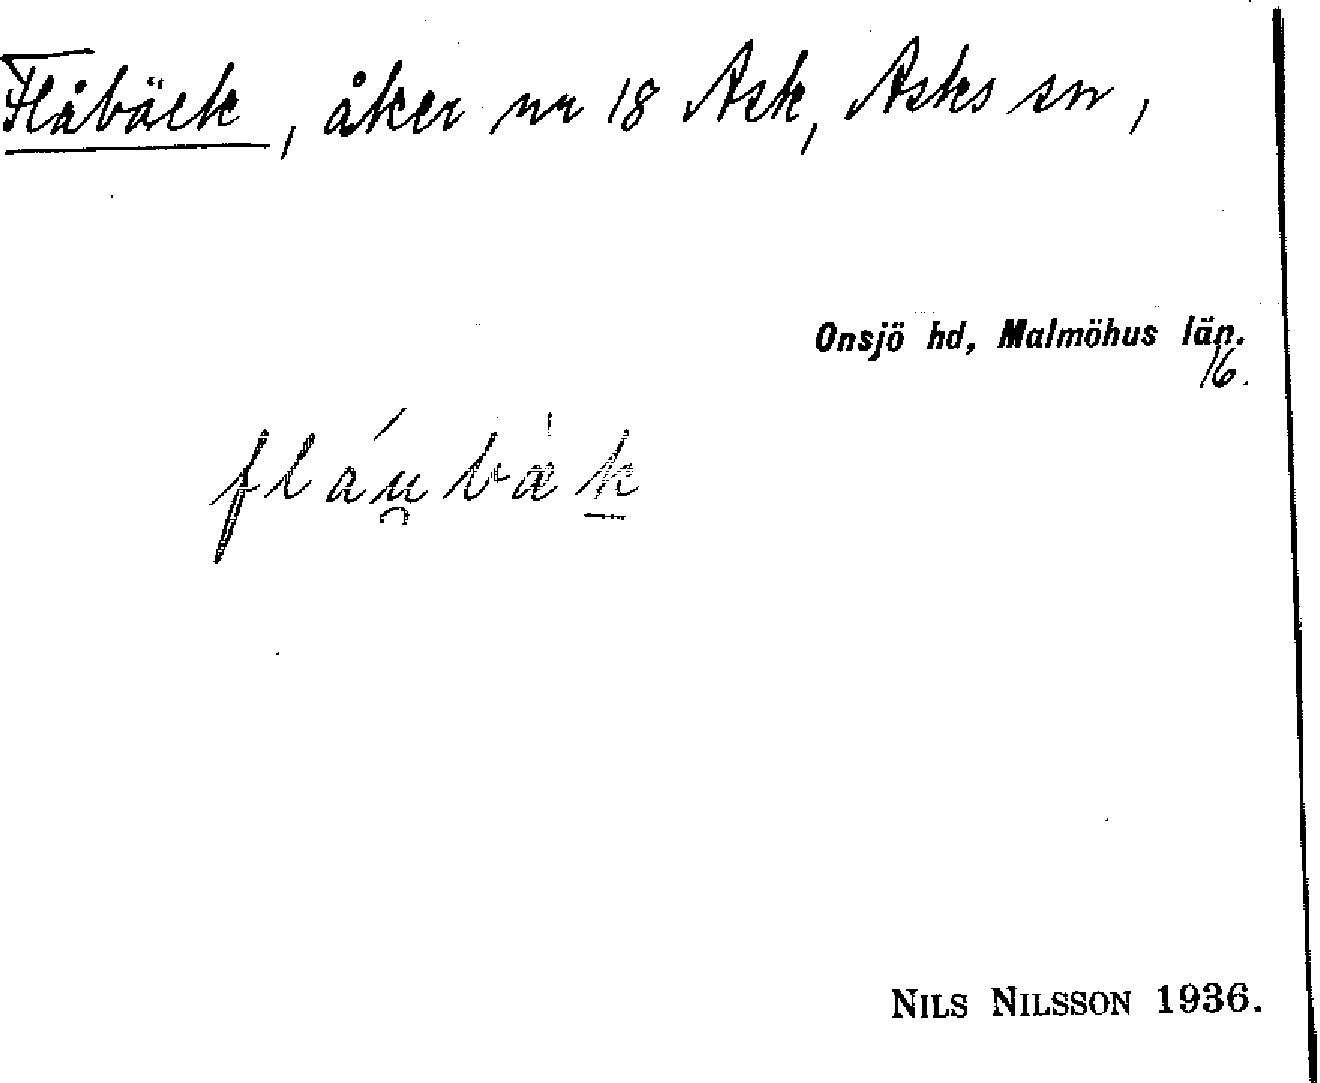 Flåbäck, åker nr 18 Ask, Asks sn,
Onsjö hd, Malmöhus län.
16.
fláu̯bæ̀k̲
NILS NILSSON 1936.